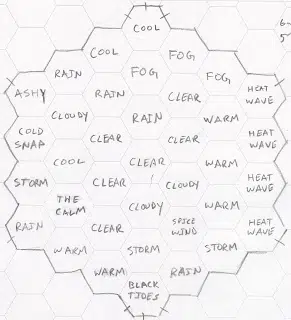 6-
5-
COOL
COOL
FOG
RAIN
FOG
FOG
ASHY
RAIN
CLEAR
HEAT
WAVE
CLOUDY
RAIN
WARM
COLD
SNAP
CLEAR
CLEAR
HEAT
WAVE
COOL
CLEAR
WARM
STORM
CLEAR
CLOUDY
HEAT
WAVE
THE
CALM
CLOUDY
WARM
RAIN
CLEAR
SPICE
WIND
HEAT
WAVE
WARM
STORM
STORM
WARM
RAIN
BLACK
TIDES